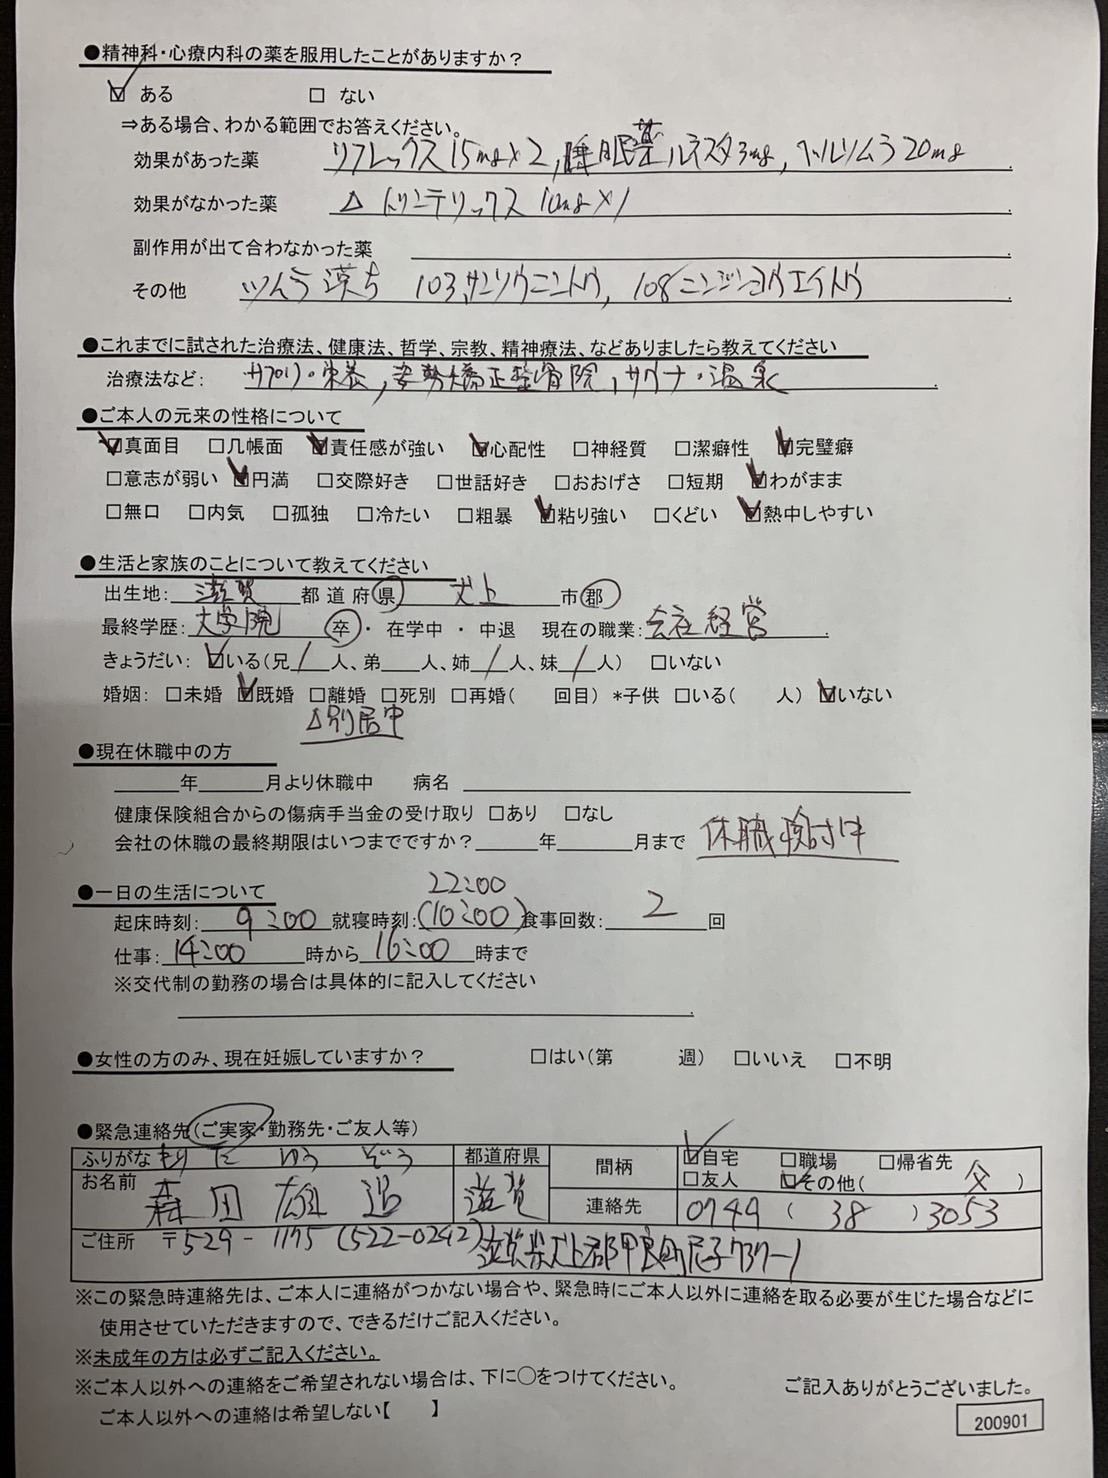 ●精神科・心療内科の薬を服用したことがありますか？
☑ ある　□ ない
⇒ある場合、わかる範囲でお答えください。
効果があった薬 リフレックス15mg×2, 睡眠薬 ルネスタ3mg, ベルソムラ20mg
効果がなかった薬 △ トリンテリックス 10mg×1
副作用が出て合わなかった薬
その他 ツムラ漢方 103,サンソウニントウ, 108ニンジンヨウエイトウ
●これまでに試された治療法、健康法、哲学、宗教、精神療法、などありましたら教えてください
治療法など: サプリ・栄養, 姿勢矯正整骨院, サウナ・温泉
●ご本人の元来の性格について
☑真面目 □几帳面 ☑責任感が強い ☑心配性 □神経質 □潔癖性 ☑完璧癖
□意志が弱い ☑円満 □交際好き □世話好き □おおげさ □短期 ☑わがまま
□無口 □内気 □孤独 □冷たい □粗暴 ☑粘り強い □くどい ☑熱中しやすい
●生活と家族のことについて教えてください
出生地: 滋賀 都道府県 犬上 市郡
最終学歴: 大学院 卒・在学中・中退 現在の職業: 会社経営
きょうだい: ☑いる(兄/人、弟 人、姉/人、妹/人) □いない
婚姻: □未婚 ☑既婚 □離婚 □死別 □再婚( 回目) *子供 □いる( 人) ☑いない
△別居中
●現在休職中の方
年 月より休職中 病名
健康保険組合からの傷病手当金の受け取り □あり □なし
会社の休職の最終期限はいつまでですか？ 年 月まで 休職検討中
●一日の生活について
22:00
起床時刻: 9:00 就寝時刻:(10:00) 食事回数: 2 回
仕事: 14:00 時から 16:00 時まで
※交代制の勤務の場合は具体的に記入してください
●女性の方のみ、現在妊娠していますか？ □はい(第 週) □いいえ □不明
●緊急連絡先(ご実家・勤務先・ご友人等)
ふりがな もりた ゆうぞう 都道府県 間柄 ☑自宅 □職場 □帰省先
□友人 ☑その他( 父 )
お名前 森田 雄 滋賀 連絡先 0749 ( 38 ) 3053
ご住所 〒529-1175 (522-0242) 滋賀県犬上郡甲良町尼子737-1
※この緊急時連絡先は、ご本人に連絡がつかない場合や、緊急時にご本人以外に連絡を取る必要が生じた場合などに
使用させていただきますので、できるだけご記入ください。
※未成年の方は必ずご記入ください。
※ご本人以外への連絡をご希望されない場合は、下に○をつけてください。
ご記入ありがとうございました。
ご本人以外への連絡は希望しない【 】
200901